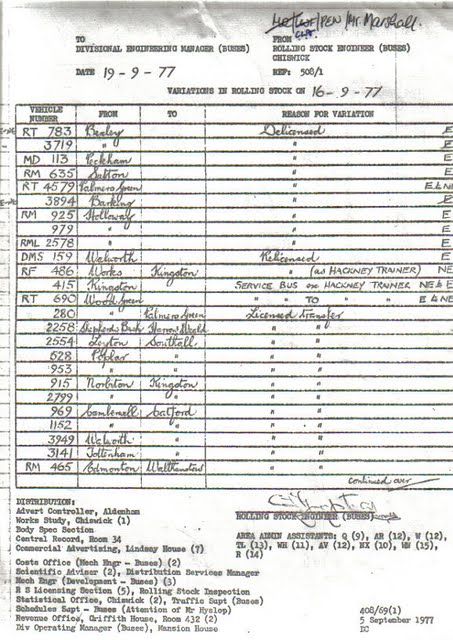 PEN/Mr. Marshall.
TO
DIVISIONAL ENGINEERING MANAGER (BUSES)
FROM
ROLLING STOCK ENGINEER (BUSES)
CHISWICK
DATE 19-9-77
REF: 508/1
VARIATIONS IN ROLLING STOCK ON 16-9-77
VEHICLE NUMBER FROM TO REASON FOR VARIATION
RT 783 Bexley Delicensed E
3719 " " E
MD 113 Peckham " E
RM 635 Sutton " E
RT 4579 Palmers Green " E & NE
3894 Barking " E
RM 925 Holloway " E
979 " " E
RML 2578 " " E
DMS 159 Walworth Relicensed E
RF 486 Works Kingston " (as HACKNEY TRAINER) NE
415 Kingston SERVICE BUS or HACKNEY TRAINER NE & E
RT 690 Wood Green " " TO " " E & NE
280 " Palmers Green Licensed transfer
2258 Shepherds Bush Harrow Weald " "
2554 Leyton Southall " "
628 Poplar " " "
953 " " " "
915 Norbiton Kingston " "
2799 " " " "
969 Camberwell Catford " "
1152 " " " "
3949 Walworth " " "
3141 Tottenham " " "
RM 465 Edmonton Walthamstow " "
continued over
DISTRIBUTION:
Advert Controller, Aldenham
Works Study, Chiswick (1)
Body Spec Section
Central Record, Room 34
Commercial Advertising, Lindsay House (7)
Costs Office (Mech Engr - Buses) (2)
Scientific Adviser (2), Distribution Services Manager
Mech Engr (Development - Buses) (3)
R S Licensing Section (5), Rolling Stock Inspection
Statistical Office, Chiswick (2), Traffic Supt (Buses)
Schedules Supt - Buses (Attention of Mr Hyslop)
Revenue Office, Griffith House, Room 432 (2)
Div Operating Manager (Buses), Mansion House
ROLLING STOCK ENGINEER (BUSES)
AREA ADMIN ASSISTANTS: Q (9), AR (12), W (12),
TL (13), WH (11), AV (12), NX (10), WN (15),
R (14)
408/69(1)
5 September 1977